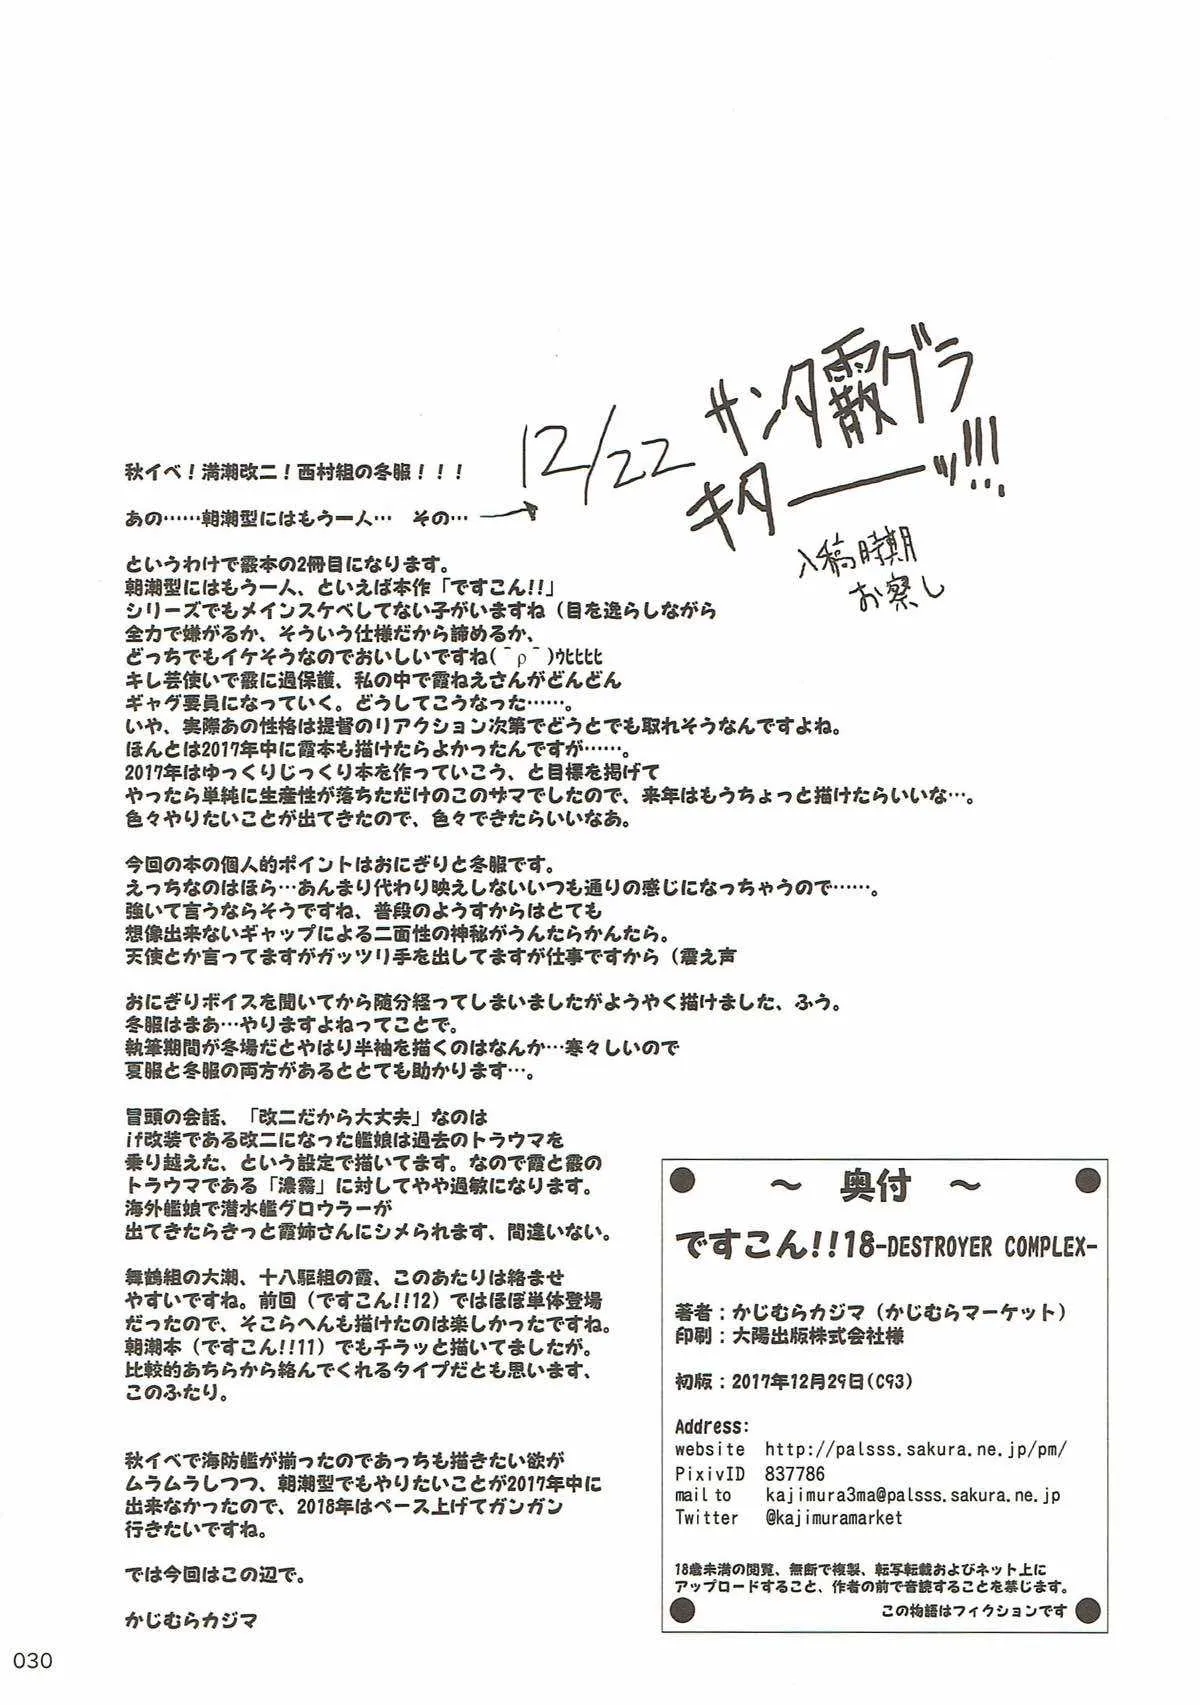 12/22
サンタ霰グラ
キターーッ!!!
入稿時期
お察し
秋イベ！満潮改二！西村組の冬服！！！
あの……朝潮型にはもう一人…　その…
というわけで霰本の2冊目になります。
朝潮型にはもう一人、といえば本作「ですこん!!」
シリーズでもメインスケベしてない子がいますね（目を逸らしながら
全力で嫌がるか、そういう仕様だから諦めるか、
どっちでもイケそうなのでおいしいですね(¯ρ¯)ｳﾋﾋﾋﾋ
キレ芸使いで霰に過保護、私の中で霞ねえさんがどんどん
ギャグ要員になっていく。どうしてこうなった……。
いや、実際あの性格は提督のリアクション次第でどうとでも取れそうなんですよね。
ほんとは2017年中に霞本も描けたらよかったんですが……。
2017年はゆっくりじっくり本を作っていこう、と目標を掲げて
やったら単純に生産性が落ちただけのこのザマでしたので、来年はもうちょっと描けたらいいな…。
色々やりたいことが出てきたので、色々できたらいいなあ。
今回の本の個人的ポイントはおにぎりと冬服です。
えっちなのはほら…あんまり代わり映えしないいつも通りの感じになっちゃうので……。
強いて言うならそうですね、普段のようすからはとても
想像出来ないギャップによる二面性の神秘がうんたらかんたら。
天使とか言ってますがガッツリ手を出してますが仕事ですから（震え声
おにぎりボイスを聞いてから随分経ってしまいましたがようやく描けました、ふう。
冬服はまあ…やりますよねってことで。
執筆期間が冬場だとやはり半袖を描くのはなんか…寒々しいので
夏服と冬服の両方があるととても助かります…。
冒頭の会話、「改二だから大丈夫」なのは
if改装である改二になった艦娘は過去のトラウマを
乗り越えた、という設定で描いてます。なので霞と霰の
トラウマである「濃霧」に対してやや過敏になります。
海外艦娘で潜水艦グロウラーが
出てきたらきっと霞姉さんにシメられます、間違いない。
舞鶴組の大潮、十八駆組の霞、このあたりは絡ませ
やすいですね。前回（ですこん!!12）ではほぼ単体登場
だったので、そこらへんも描けたのは楽しかったですね。
朝潮本（ですこん!!11）でもチラッと描いてましたが。
比較的あちらから絡んでくれるタイプだとも思います、
このふたり。
秋イベで海防艦が揃ったのであっちも描きたい欲が
ムラムラしつつ、朝潮型でもやりたいことが2017年中に
出来なかったので、2018年はペース上げてガンガン
行きたいですね。
では今回はこの辺で。
かじむらカジマ
～　奥付　～
ですこん!!18-DESTROYER COMPLEX-
著者：かじむらカジマ（かじむらマーケット）
印刷：大陽出版株式会社様
初版：2017年12月29日(C93)
Address:
website http://palsss.sakura.ne.jp/pm/
PixivID 837786
mail to kajimura3ma@palsss.sakura.ne.jp
Twitter @kajimuramarket
18歳未満の閲覧、無断で複製、転写転載およびネット上に
アップロードすること、作者の前で音読することを禁じます。
この物語はフィクションです
030